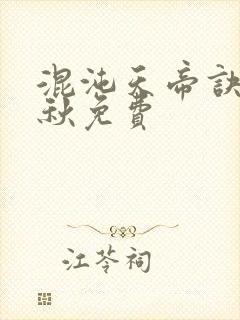 混沌天帝訣
秋免費
江苓祠